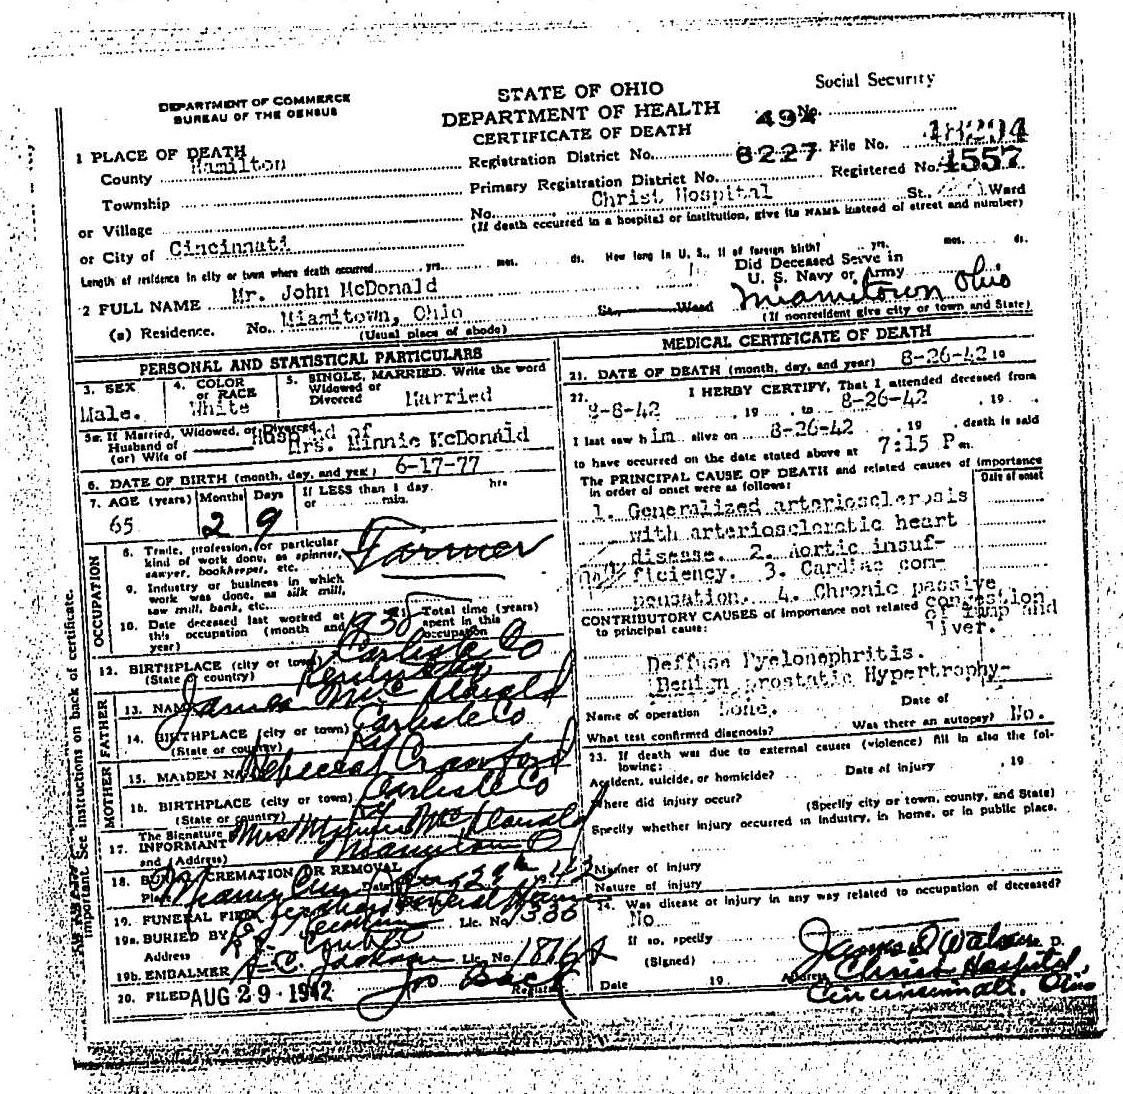 STATE OF OHIO
DEPARTMENT OF HEALTH
CERTIFICATE OF DEATH
DEPARTMENT OF COMMERCE
BUREAU OF THE CENSUS
Social Security
No.
1 PLACE OF DEATH
County Hamilton
Registration District No. 494
File No. 48294
Township
Primary Registration District No. 8227
Registered No. 4557
or Village
No. Christ Hospital St., Ward
(If death occurred in a hospital or institution, give its NAME instead of street and number)
or City of Cincinnati
Length of residence in city or town where death occurred yrs. mos. ds. How long in U. S., if of foreign birth? yrs. mos. ds.
Did Deceased Serve in
U. S. Navy or Army
2 FULL NAME Mr. John McDonald
(a) Residence. No. Miamitown, Ohio St., Ward Miamitown Ohio
(Usual place of abode)
(If nonresident give city or town and State)
PERSONAL AND STATISTICAL PARTICULARS
3. SEX Male.
4. COLOR or RACE White
5. SINGLE, MARRIED. Write the word
Widowed or
Divorced Married
5a. If Married, Widowed, or Divorced
Husband of
(or) Wife of Mrs. Minnie McDonald
6. DATE OF BIRTH (month, day, and year) 6-17-77
7. AGE (years) 65 Months 2 Days 9
If LESS than 1 day hrs
or min.
OCCUPATION
8. Trade, profession, or particular
kind of work done, as spinner,
sawyer, bookkeeper, etc. Farmer
9. Industry or business in which
work was done, as silk mill,
saw mill, bank, etc.
10. Date deceased last worked at
this occupation (month and
year) 1938
11. Total time (years)
spent in this
occupation
12. BIRTHPLACE (city or town) Carlisle Co
(State or country) Kentucky
FATHER
13. NAME James McDonald
14. BIRTHPLACE (city or town) Carlisle Co
(State or country) Ky
MOTHER
15. MAIDEN NAME Rebecca Crawford
16. BIRTHPLACE (city or town) Carlisle Co
(State or country) Ky
17. The Signature
INFORMANT Mrs Minnie McDonald
and (Address) Miamitown O
18. BURIAL, CREMATION OR REMOVAL
Date 29th
19. FUNERAL FIRM Funeral Home
19a. BURIED BY Lic. No. 1386
Address
19b. EMBALMER C. Jackson Lic. No. 1876A
20. FILED AUG 29 1942
Registrar
important. See instructions on back of certificate.
MEDICAL CERTIFICATE OF DEATH
21. DATE OF DEATH (month, day, and year) 8-26-42 19
22. I HERBY CERTIFY, That I attended deceased from
8-8-42, 19, to 8-26-42, 19.
I last saw him alive on 8-26-42, 19, death is said
to have occurred on the date stated above at 7:15 P m.
The PRINCIPAL CAUSE OF DEATH and related causes of importance
in order of onset were as follows:
Date of onset
1. Generalized arteriosclerosis
with arteriosclerotic heart
disease. 2. Aortic insuf-
ficiency. 3. Cardiac com-
pensation. 4. Chronic passive
congestion
of lung and
liver.
CONTRIBUTORY CAUSES of importance not related
to principal cause:
Deffuse Pyelonephritis.
Benign prostatic Hypertrophy-
Name of operation None. Date of
What test confirmed diagnosis? Was there an autopsy? No.
23. If death was due to external causes (violence) fill in also the fol-
lowing:
Accident, suicide, or homicide? Date of injury , 19
Where did injury occur?
(Specify city or town, county, and State)
Specify whether injury occurred in industry, in home, or in public place.
Manner of injury
Nature of injury
24. Was disease or injury in any way related to occupation of deceased?
No
If so, specify
(Signed) James D Watson
Date 19 Address Christ Hospital,
Cincinnati, Ohio